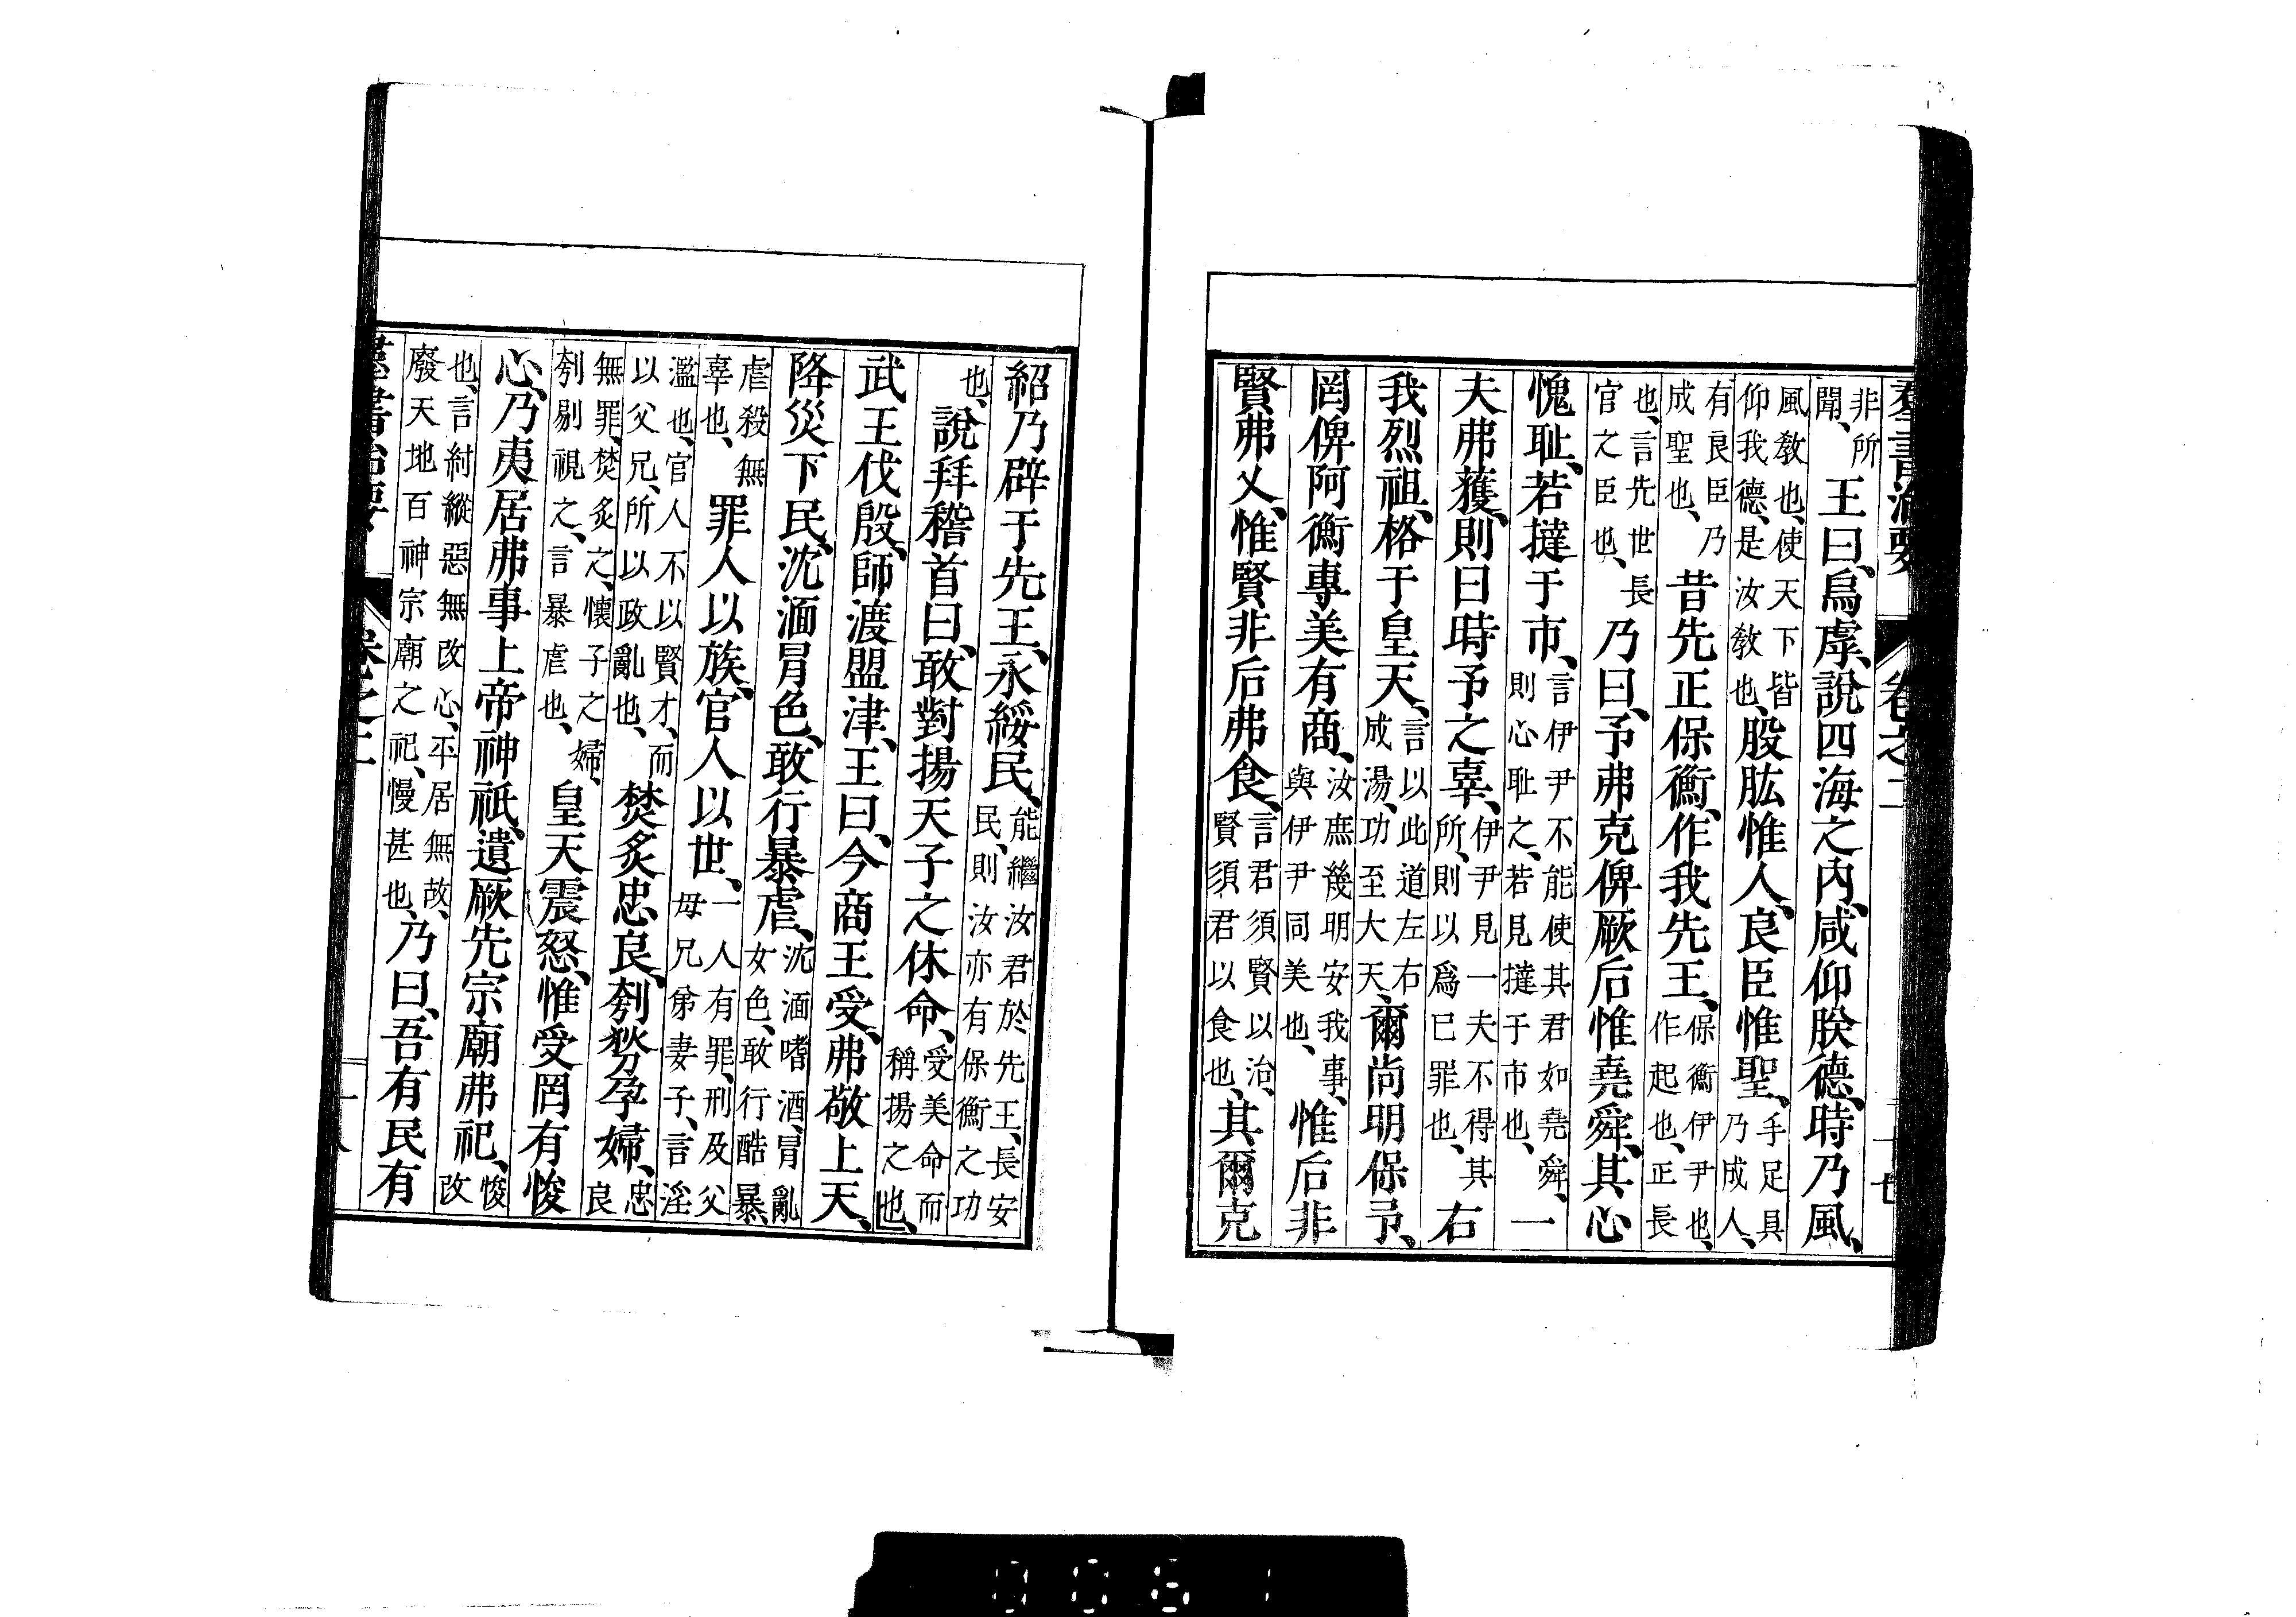 羣書治要 卷之二
非所聞、王曰、烏虖、說四海之內、咸仰朕德、時乃風、
風敎也、使天下皆仰我德、是汝敎也、股肱惟人、良臣惟聖、手足具乃成人、
有良臣乃成聖也、昔先正保衡、作我先王、保衡伊尹也、作起也、正長
也、言先世長官之臣也、乃曰、予弗克俾厥后惟堯舜、其心
愧耻、若撻于市、言伊尹不能使其君如堯舜、則心耻之、若見撻于市也、一
夫弗獲、則曰時予之辜、伊尹見一夫不得其所、則以爲己罪也、右
我烈祖、格于皇天、言以此道左右成湯、功至大天、爾尚明保予、
罔俾阿衡專美有商、汝庶幾明安我事、與伊尹同美也、惟后非
賢弗乂、惟賢非后弗食、言君須賢以治、賢須君以食也、其爾克
紹乃辟于先王、永綏民、能繼汝君於先王、長安民、則汝亦有保衡之功
也、說拜稽首曰、敢對揚天子之休命、受美命而稱揚之也、
武王伐殷、師渡盟津、王曰、今商王受、弗敬上天、
降災下民、沈湎冐色、敢行暴虐、沈湎嗜酒、冐亂女色、敢行酷暴、
虐殺無辜也、罪人以族、官人以世、一人有罪、刑及父母兄弟妻子、言淫
濫也、官人不以賢才、而以父兄、所以政亂也、焚炙忠良、刳剔孕婦、忠良
無罪、焚炙之、懷子之婦、刳剔視之、言暴虐也、皇天震怒、惟受罔有悛
心、乃夷居弗事上帝神祇、遺厥先宗廟弗祀、悛改
也、言紂縱惡無改心、平居無故、廢天地百神宗廟之祀、慢甚也、乃曰、吾有民有
羣書治要 卷之二